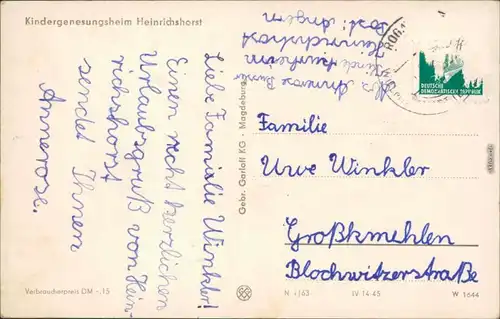 Kindergenesungsheim Heinrichshorst
Liebe Familie Winkler!
Einen recht herzlichen
Urlaubsgruß vom Hein-
richshorst
sendet Ihnen
Annerose.
Annerose
Kinderkurheim
Heinrichshorst
Post: Angern
DEUTSCHE
DEMOKRATISCHE REPUBLIK
Familie
Uwe Winkler
Großkmehlen
Blochwitzerstraße
Gebr. Garloff KG - Magdeburg
Verbraucherpreis DM -,15
N 1/63 IV-14-45 W 1644